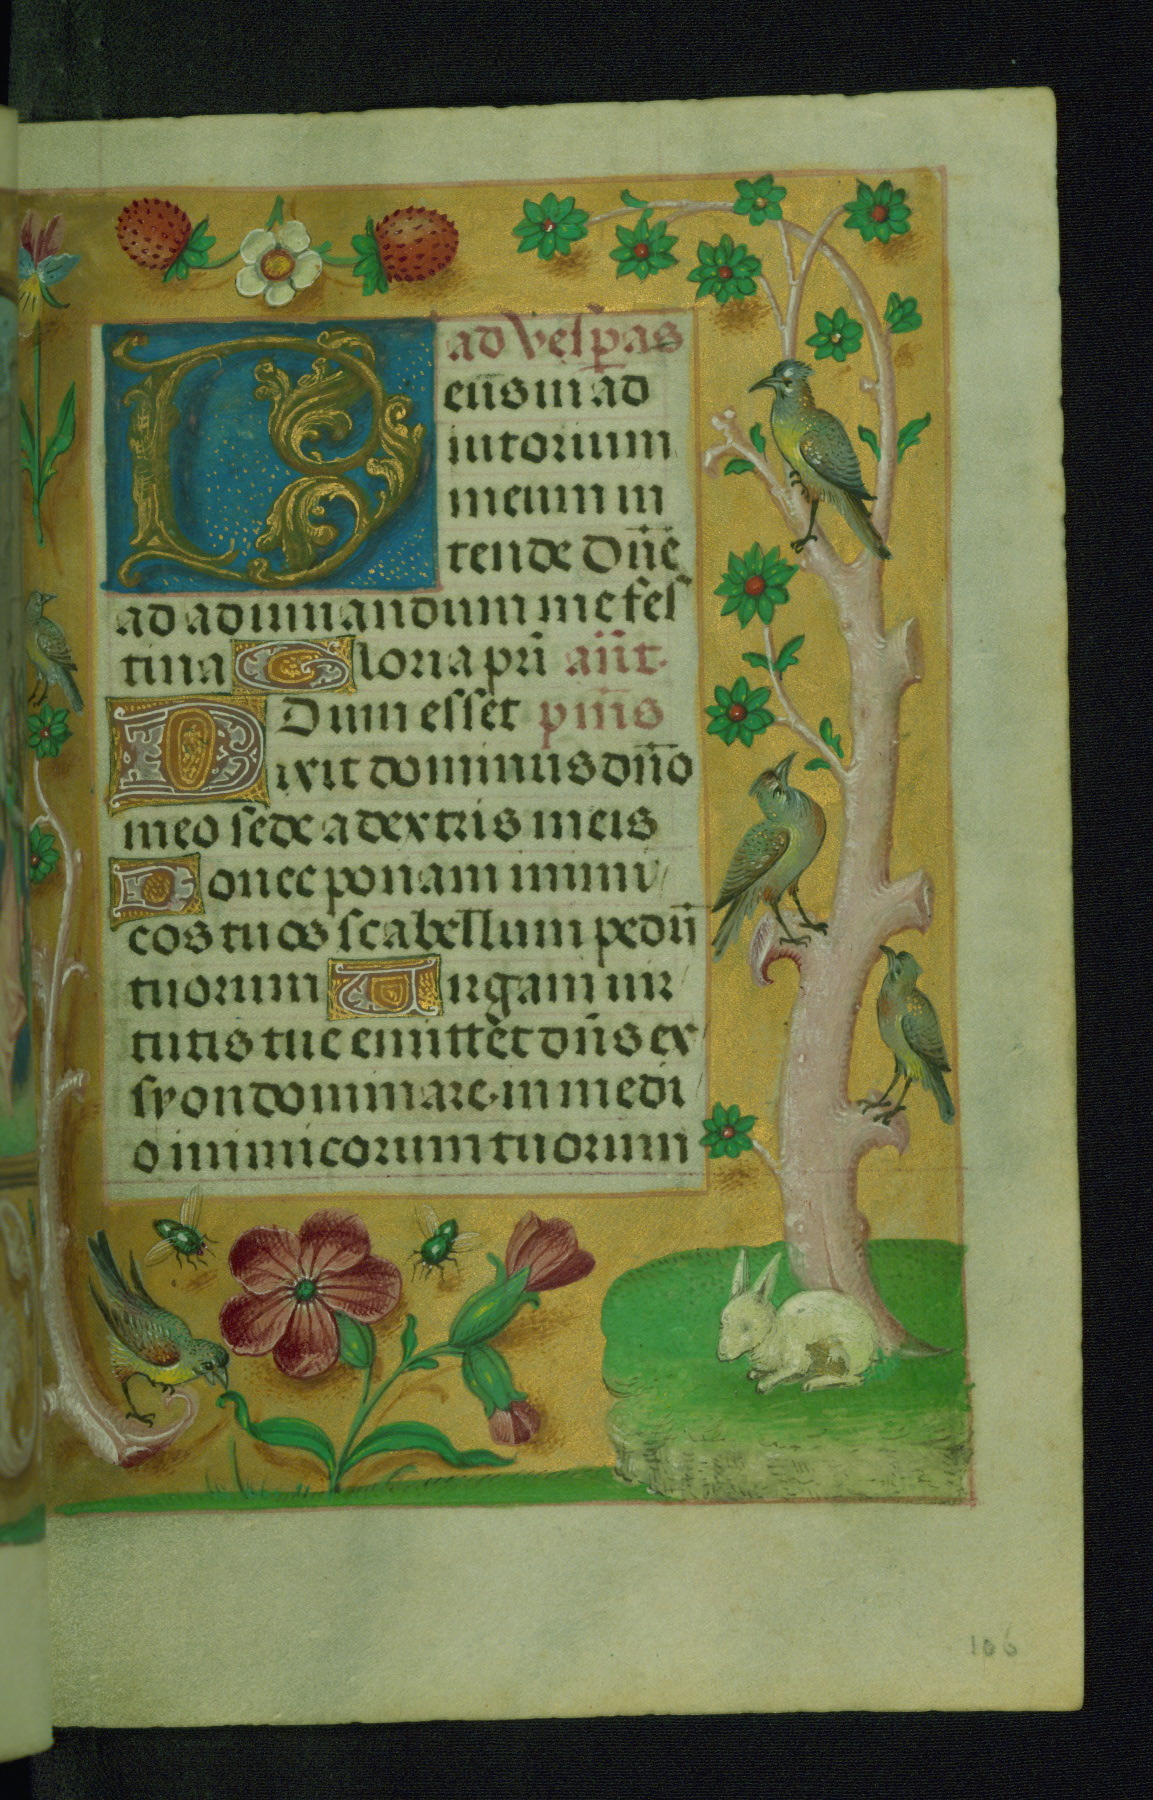 ad vesp̱as
Deus in ad
iutorium
meum in
tende Dn̄e
ad adiuuandum me fes
tina Gloria pr̄i an̄t.
Dum esset ps̄
Dixit dominus dn̄o
meo sede a dextris meis
Donec ponam inimi
cos tuos scabellum pedū
tuorum Uirgam uir
tutis tue emittet dn̄s ex
syon dominare in medi
o inimicorum tuorum
106